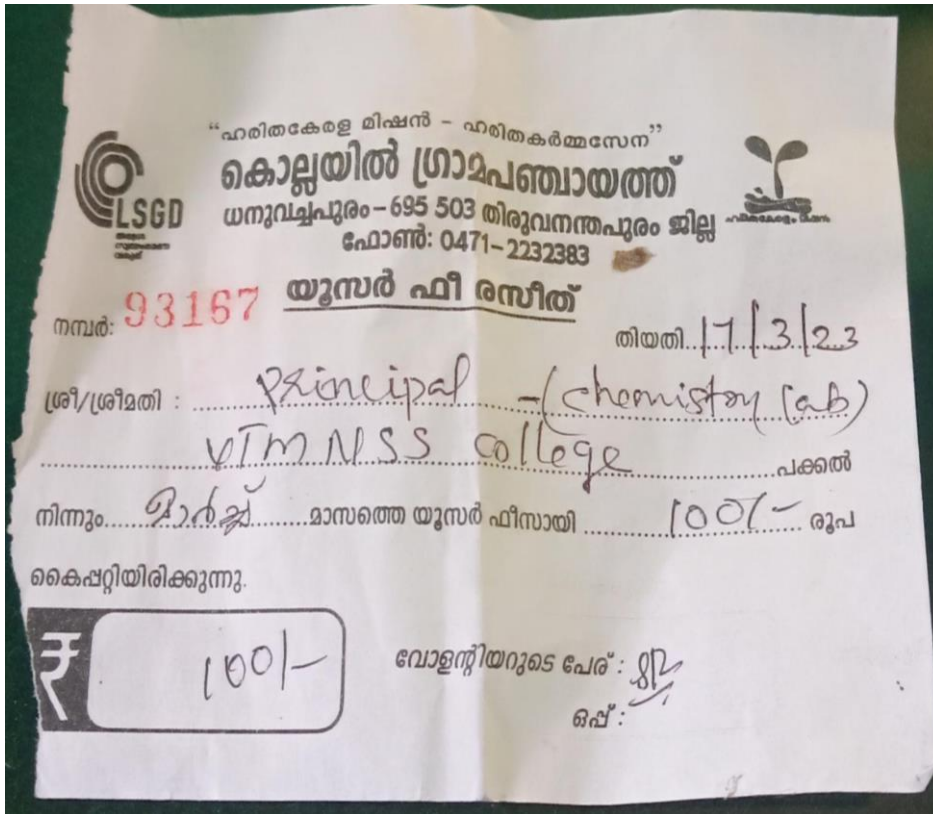 “ഹരിതകേരള മിഷൻ – ഹരിതകർമ്മസേന”
കൊല്ലയിൽ ഗ്രാമപഞ്ചായത്ത്
LSGD
ധനുവച്ചപുരം–695 503 തിരുവനന്തപുരം ജില്ല
ഹരിതകേരളം മിഷൻ
ഫോൺ: 0471–2232383
യൂസർ ഫീ രസീത്
നമ്പർ: 93167
തിയതി 17/3/23
ശ്രീ/ശ്രീമതി : Principal - (Chemistry Lab)
VTM NSS College പക്കൽ
നിന്നും മാർച്ച് മാസത്തെ യൂസർ ഫീസായി 100/- രൂപ
കൈപ്പറ്റിയിരിക്കുന്നു.
₹ 100/-
വോളന്റിയറുടെ പേര് :
ഒപ്പ് :